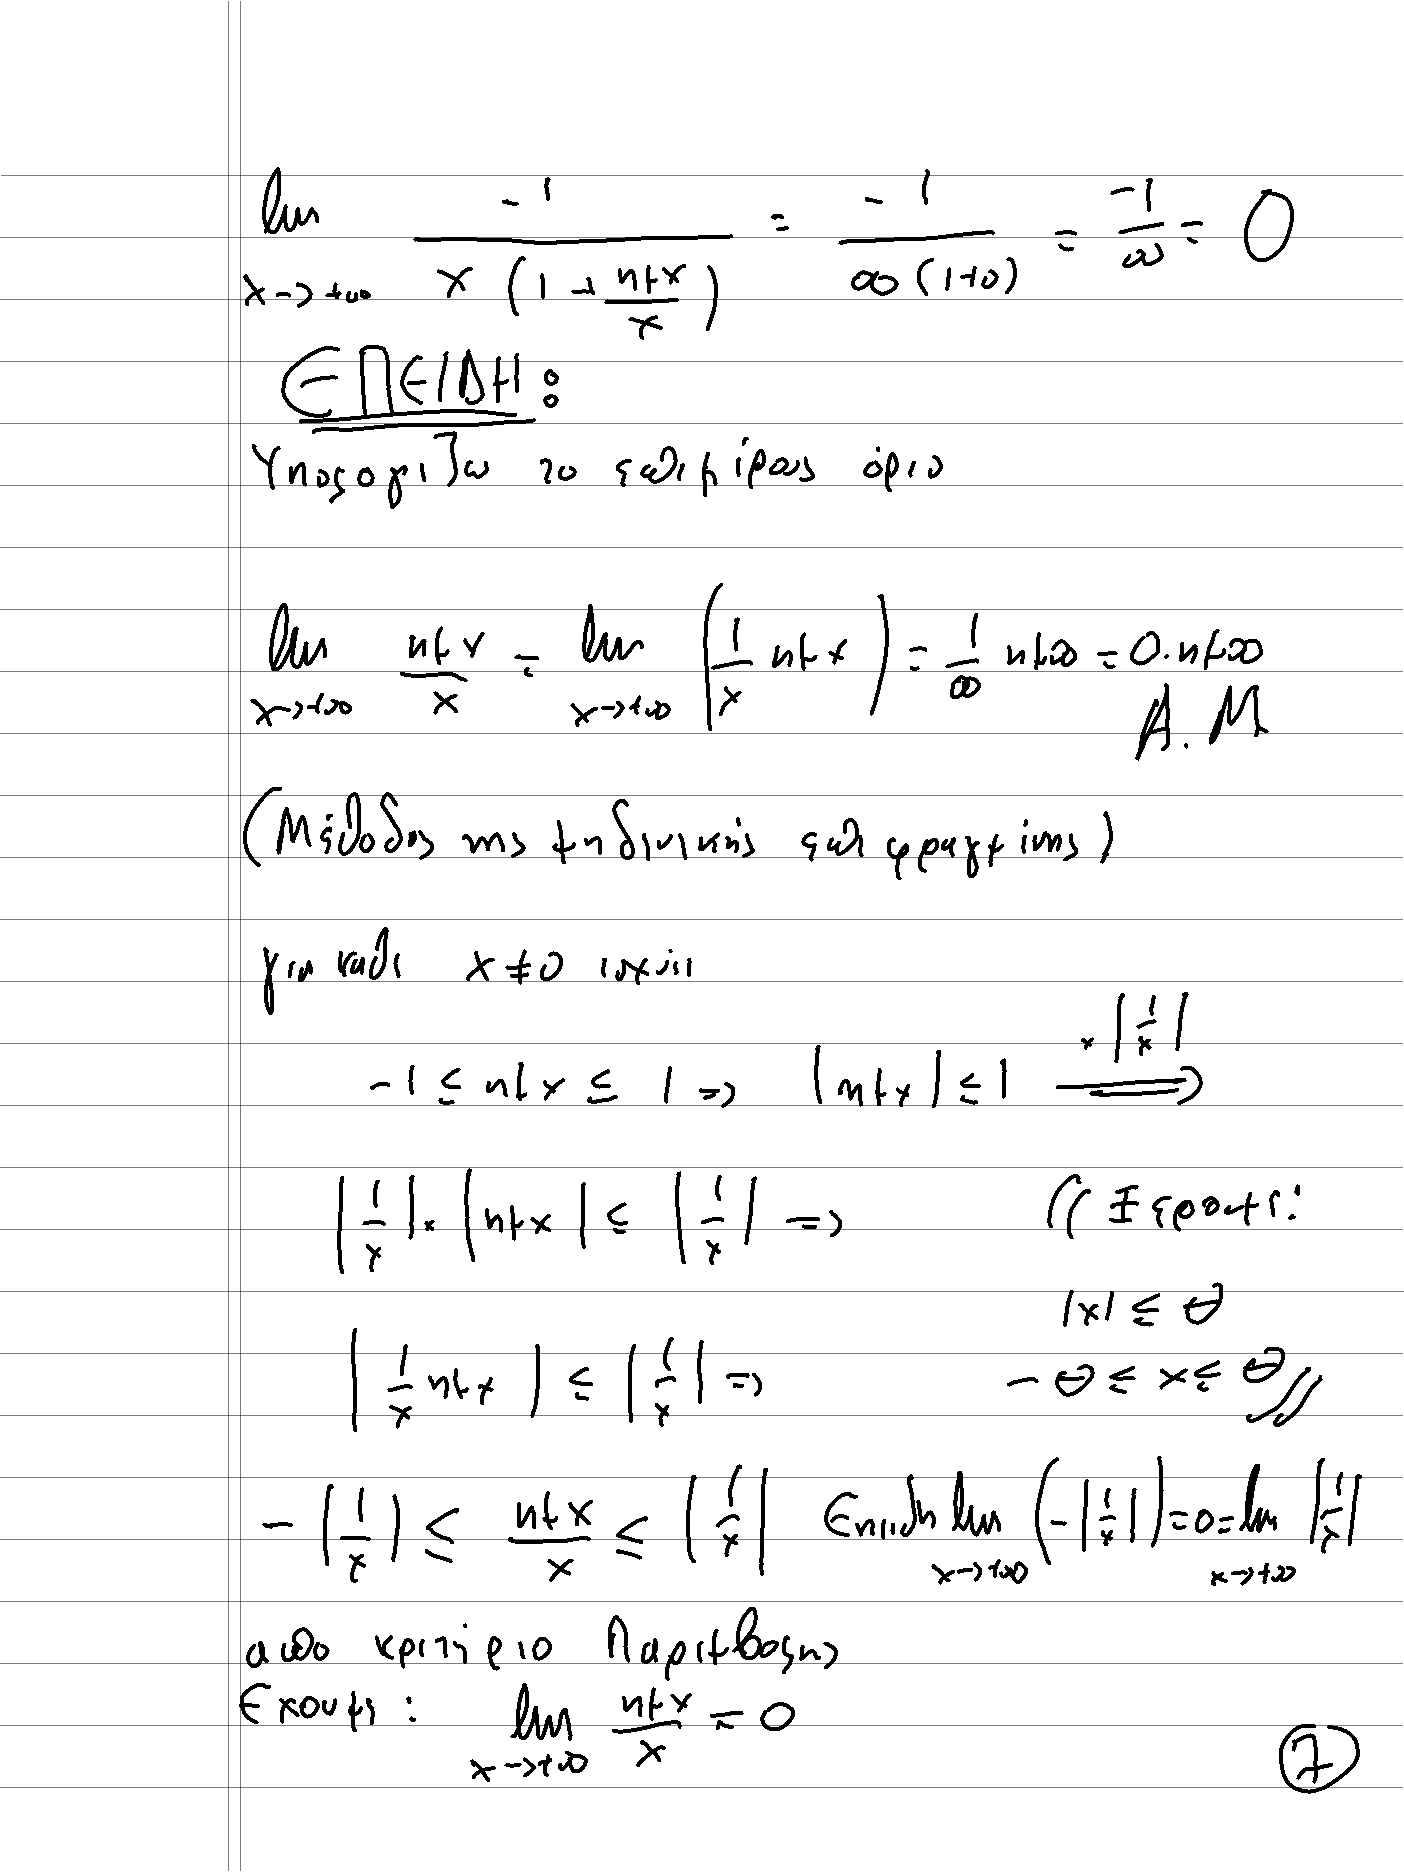 lim x→+∞ -1 / (x (1 + ημx/x)) = -1 / (∞(1+0)) = -1/∞ = 0
ΕΠΕΙΔΗ:
Υπολογιζω το επιμέρους όριο
lim x→+∞ ημx/x = lim x→+∞ (1/x ημx) = 1/∞ ημ∞ = 0·ημ∞
Α.Μ
(Μέθοδος της μηδενικής επι φραγμένης)
για καθε x≠0 ισχύει
-1 ≤ ημx ≤ 1 => |ημx| ≤ 1 ·|1/x| =>
|1/x|·|ημx| ≤ |1/x| => // Ξερουμε:
|x| ≤ θ
|1/x ημx| ≤ |1/x| => -θ ≤ x ≤ θ //
-|1/x| ≤ ημx/x ≤ |1/x| Επειδη lim x→+∞ (-|1/x|) = 0 = lim x→+∞ |1/x|
απο κριτήριο Παρεμβολης
Εχουμε: lim x→+∞ ημx/x = 0
7